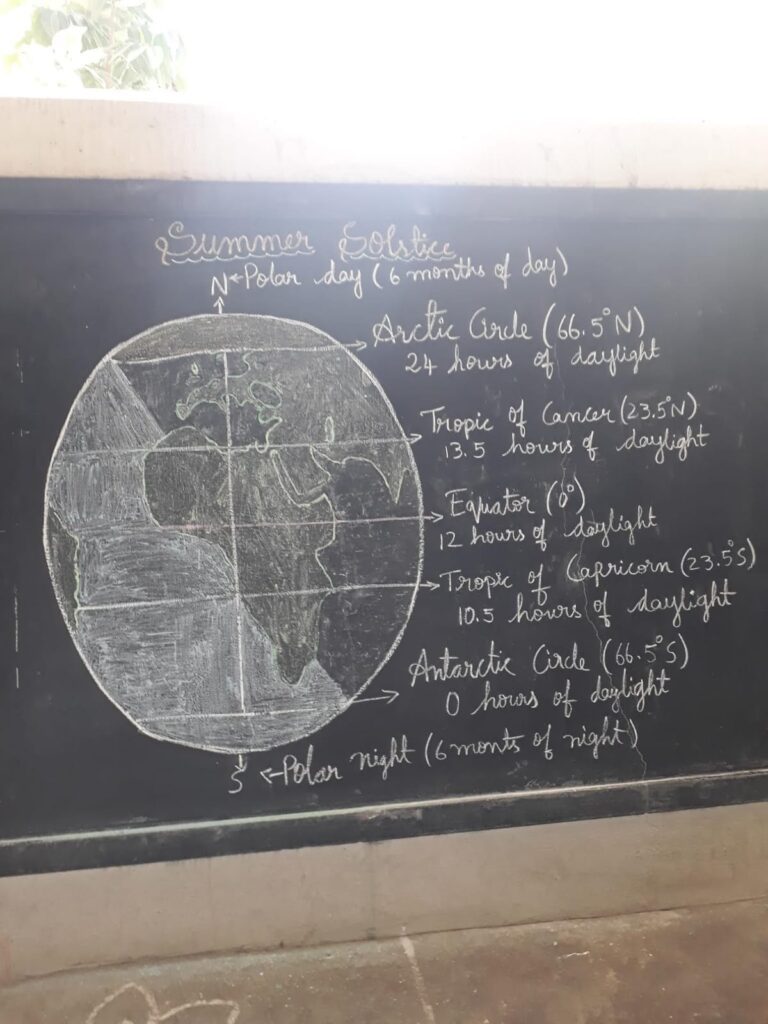 Summer Solstice
N ← Polar day (6 months of day)
Arctic Circle (66.5°N)
24 hours of daylight
Tropic of Cancer (23.5°N)
13.5 hours of daylight
Equator (0°)
12 hours of daylight
Tropic of Capricorn (23.5°S)
10.5 hours of daylight
Antarctic Circle (66.5°S)
0 hours of daylight
S ← Polar night (6 monts of night)